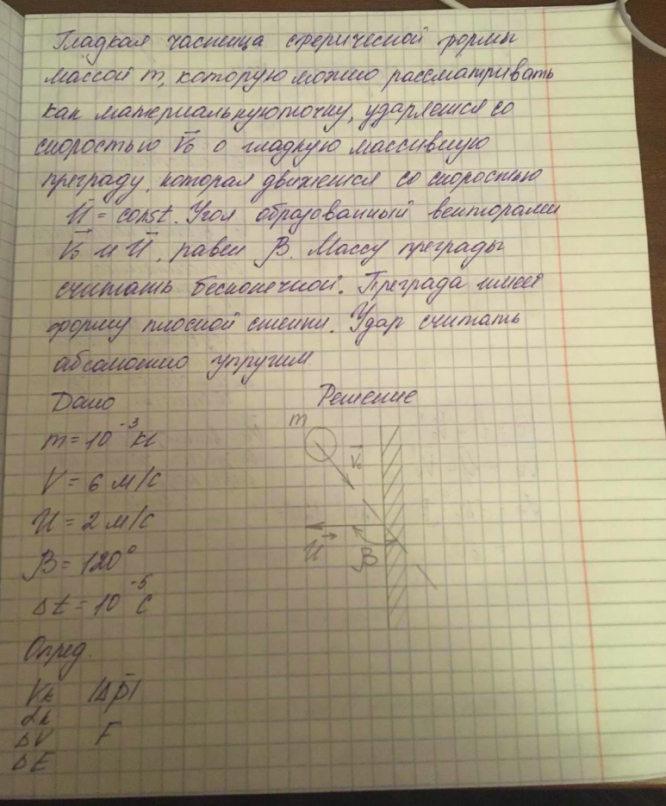 Гладкая частица сферической формы
массой m, которую можно рассматривать
как материальную точку, ударяется со
скоростью V₀ о гладкую массивную
преграду, которая движется со скоростью
U = const. Угол образованный векторами
V₀ и U, равен β. Массу преграды
считать бесконечной. Преграда имеет
форму плоской стенки. Удар считать
абсолютно упругим.
Дано Решение
m = 10⁻³ кг
V = 6 м/с
U = 2 м/с
β = 120°
Δt = 10⁻⁵ с
m
V₀
U β
Опред.
Vк |Δp|
αк
ΔV F
ΔE